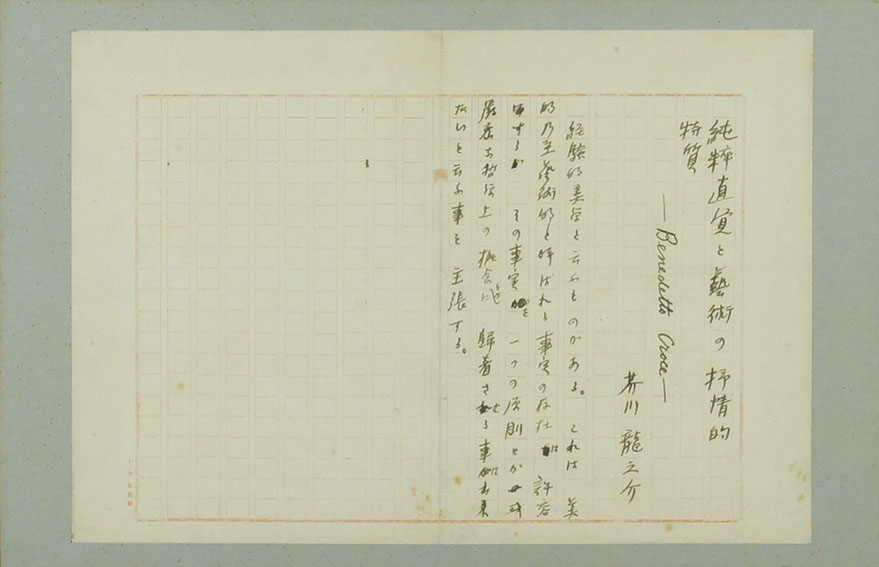 純粋直覚と藝術の抒情的
特質
―Benedetto Croce―
芥川龍之介
経験的美学と云ふものがある。これは美
的乃至藝術的と呼ばれる事実の存在は許容
するが その事実を 一つの原則とか
厳密な哲学上の概念に 帰着させる事は出来
ないと云ふ事を主張する。